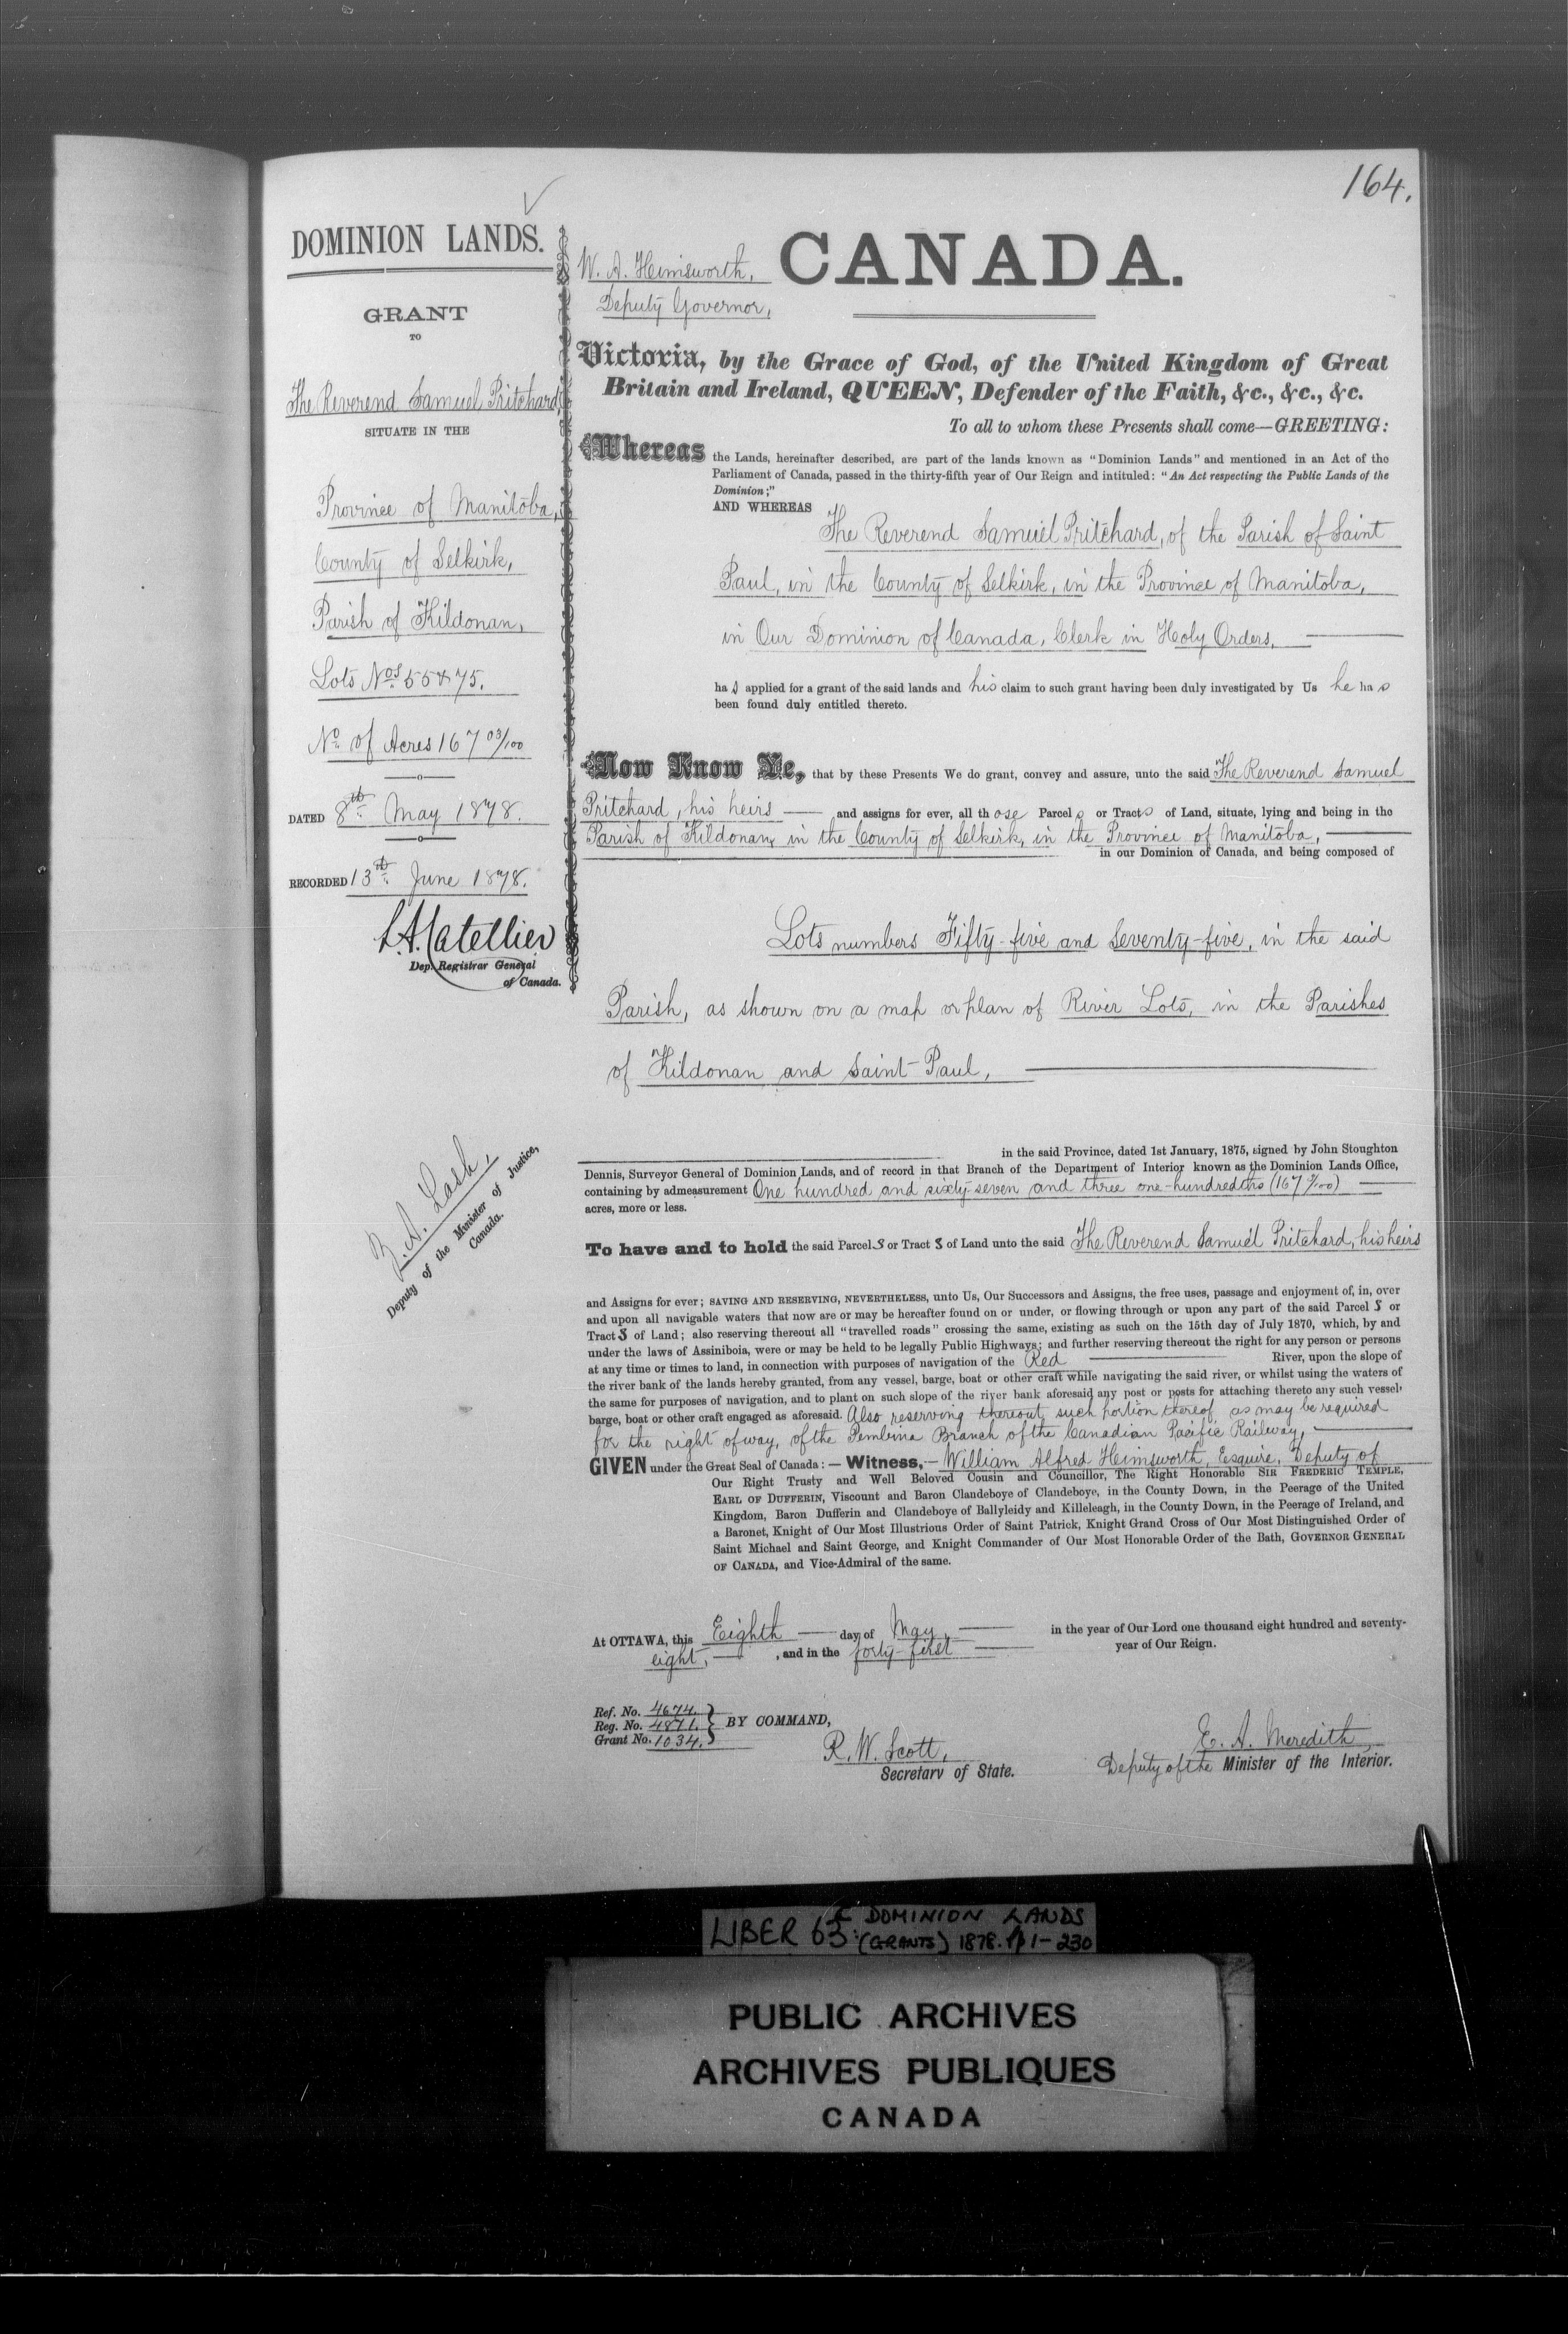 164.
DOMINION LANDS.
GRANT
TO
The Reverend Samuel Pritchard,
SITUATE IN THE
Province of Manitoba,
County of Selkirk,
Parish of Kildonan,
Lots Nos. 55 & 75.
No. of Acres 167 03/100
DATED 8th May 1878.
RECORDED 13th June 1878.
Dep. Registrar General
of Canada.
Z. A. Lash,
Deputy of the Minister of Justice,
Canada.
W. A. Himsworth,
Deputy Governor,
CANADA.
Victoria, by the Grace of God, of the United Kingdom of Great
Britain and Ireland, QUEEN, Defender of the Faith, &c., &c., &c.
To all to whom these Presents shall come—GREETING:
Whereas the Lands, hereinafter described, are part of the lands known as "Dominion Lands" and mentioned in an Act of the
Parliament of Canada, passed in the thirty-fifth year of Our Reign and intituled: "An Act respecting the Public Lands of the
Dominion;"
AND WHEREAS The Reverend Samuel Pritchard, of the Parish of Saint
Paul, in the County of Selkirk, in the Province of Manitoba,
in Our Dominion of Canada, Clerk in Holy Orders,
has applied for a grant of the said lands and his claim to such grant having been duly investigated by Us he has
been found duly entitled thereto.
Now Know Ye, that by these Presents We do grant, convey and assure, unto the said The Reverend Samuel
Pritchard, his heirs — and assigns for ever, all those Parcels or Tracts of Land, situate, lying and being in the
Parish of Kildonan, in the County of Selkirk, in the Province of Manitoba,
in our Dominion of Canada, and being composed of
Lots numbers Fifty-five and Seventy-five, in the said
Parish, as shown on a map or plan of River Lots, in the Parishes
of Kildonan and Saint Paul,
in the said Province, dated 1st January, 1875, signed by John Stoughton
Dennis, Surveyor General of Dominion Lands, and of record in that Branch of the Department of Interior known as the Dominion Lands Office,
containing by admeasurement One hundred and sixty-seven and three one-hundredths (167 3/100)
acres, more or less.
To have and to hold the said Parcels or Tracts of Land unto the said The Reverend Samuel Pritchard, his heirs
and Assigns for ever; SAVING AND RESERVING, NEVERTHELESS, unto Us, Our Successors and Assigns, the free uses, passage and enjoyment of, in, over
and upon all navigable waters that now are or may be hereafter found on or under, or flowing through or upon any part of the said Parcel S or
Tract S of Land; also reserving thereout all "travelled roads" crossing the same, existing as such on the 15th day of July 1870, which, by and
under the laws of Assiniboia, were or may be held to be legally Public Highways; and further reserving thereout the right for any person or persons
at any time or times to land, in connection with purposes of navigation of the Red River, upon the slope of
the river bank of the lands hereby granted, from any vessel, barge, boat or other craft while navigating the said river, or whilst using the waters of
the same for purposes of navigation, and to plant on such slope of the river bank aforesaid any post or posts for attaching thereto any such vessel,
barge, boat or other craft engaged as aforesaid. Also reserving thereout such portion thereof as may be required
for the right of way, of the Pembina Branch of the Canadian Pacific Railway,
GIVEN under the Great Seal of Canada:— Witness,— William Alfred Himsworth, Esquire, Deputy of
Our Right Trusty and Well Beloved Cousin and Councillor, The Right Honorable SIR FREDERIC TEMPLE,
EARL OF DUFFERIN, Viscount and Baron Clandeboye of Clandeboye, in the County Down, in the Peerage of the United
Kingdom, Baron Dufferin and Clandeboye of Ballyleidy and Killeleagh, in the County Down, in the Peerage of Ireland, and
a Baronet, Knight of Our Most Illustrious Order of Saint Patrick, Knight Grand Cross of Our Most Distinguished Order of
Saint Michael and Saint George, and Knight Commander of Our Most Honorable Order of the Bath, GOVERNOR GENERAL
OF CANADA, and Vice-Admiral of the same.
At OTTAWA, this Eighth — day of May, — in the year of Our Lord one thousand eight hundred and seventy-
eight, — , and in the forty-first — year of Our Reign.
Ref. No. 4674.
Reg. No. 4871.
Grant No. 1034.
BY COMMAND,
R. W. Scott,
Secretary of State.
E. A. Meredith,
Deputy of the Minister of the Interior.
LIBER 63: DOMINION LANDS
(GRANTS) 1878. pp 1-230
PUBLIC ARCHIVES
ARCHIVES PUBLIQUES
CANADA